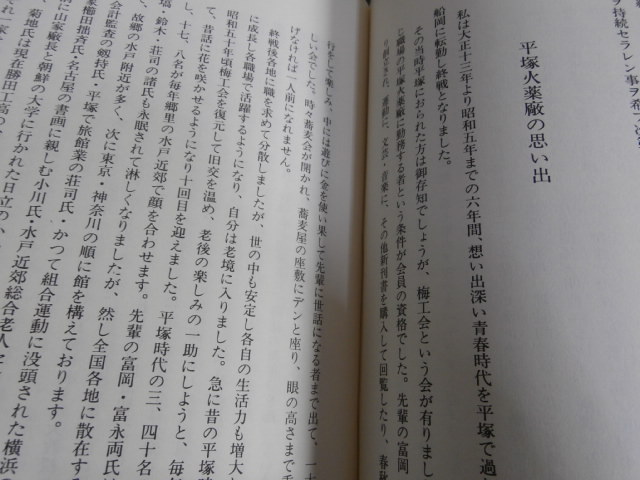 ヲ持続セラレン事ヲ
平塚火薬廠の思い出
私は大正十三年より昭和五年までの六年間、想い出深い青春時代を平塚で過
船岡に転勤し終戦となりました。
その当時平塚におられた方は御存知でしょうが、梅工会という会が有りまし
職場の平塚火薬廠に勤務する者という条件が会員の資格でした。先輩の富岡
運動に、文芸・音楽に、その他新刊書を購入して回覧したり、春秋
行をして楽しみ、中には遊びに金を使い果して先輩に世話になる者まで出て、一
しい会でした。時々蕎麦会が開かれ、蕎麦屋の座敷にデンと座り、眼の高さまで
げなければ一人前になれません。
終戦後各地に職を求めて分散しましたが、世の中も安定し各自の生活力も増大
に成長し各職場で活躍するようになり、自分は老境に入りました。急に昔の平塚
昭和五十年頃梅工会を復元して旧交を温め、老後の楽しみの一助にしようと、毎
て、昔話に花を咲かせるようになり十回目を迎えました。平塚時代の三、四十名
し、十七、八名が毎年郷里の水戸近郊で顔を合わせます。先輩の富岡・富永両氏
塙・鈴木・荘司の諸氏も永眠されて淋しくなりましたが、然し全国各地に散在する
、故郷の水戸附近が多く、次に東京・神奈川の順に館を構えております。
会計監査の勅持氏、平塚で旅館業の荘司氏・かつて組合運動に没頭された横浜の
家梅田拙斉氏・名古屋の書画に親しむ小川氏・水戸近郊総合老人
に山家廠長と朝鮮の大学に行かれた日立の
、菊地氏は現在勝田工高の
れ一家